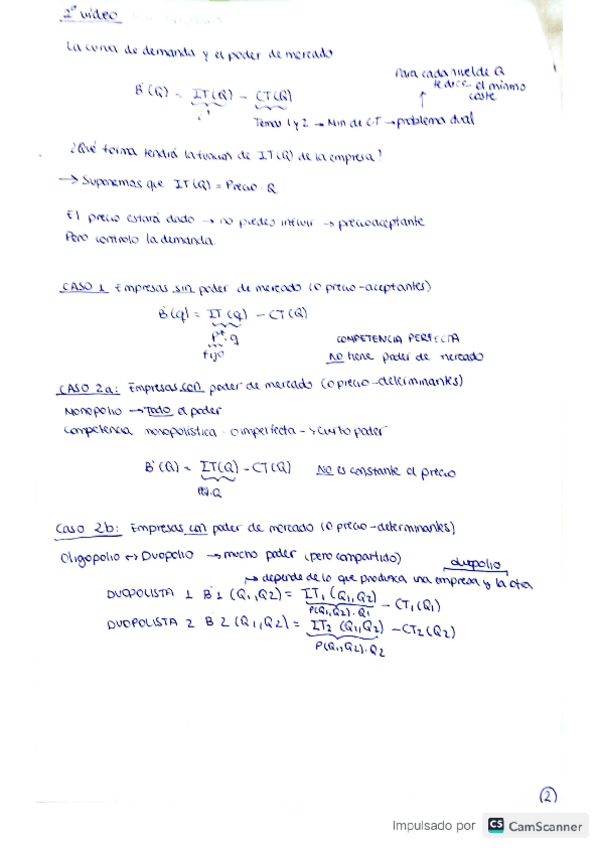 2º video
La curva de demanda y el poder de mercado
B(Q) = IT(Q) - CT(Q)
Para cada nivel de Q
te dice el mismo
coste
Temas 1 y 2 → Min de CT → problema dual
¿Qué forma tendrá la función de IT(Q) de la empresa?
→ Suponemos que IT(Q) = Precio · Q
El precio estará dado → no puedes influir → precioaceptante
Pero controlo la demanda
CASO 1 Empresas sin poder de mercado (o precio-aceptantes)
B(q) = IT(q) - CT(Q)
P*·q
fijo
COMPETENCIA PERFECTA
No tiene poder de mercado
CASO 2a: Empresas con poder de mercado (o precio-determinantes)
Monopolio → Todo el poder
Competencia monopolística o imperfecta → cierto poder
B(Q) = IT(Q) - CT(Q) No es constante el precio
P(Q)·Q
Caso 2b: Empresas con poder de mercado (o precio-determinantes)
Oligopolio ↔ Duopolio → mucho poder (pero compartido)
duopolio
→ depende de lo que produzca una empresa y la otra
DUOPOLISTA 1 B1 (Q1,Q2) = IT1 (Q1,Q2) - CT1(Q1)
P(Q1,Q2)·Q1
DUOPOLISTA 2 B2(Q1,Q2) = IT2 (Q1,Q2) - CT2(Q2)
P(Q1,Q2)·Q2
(2)
Impulsado por CS CamScanner